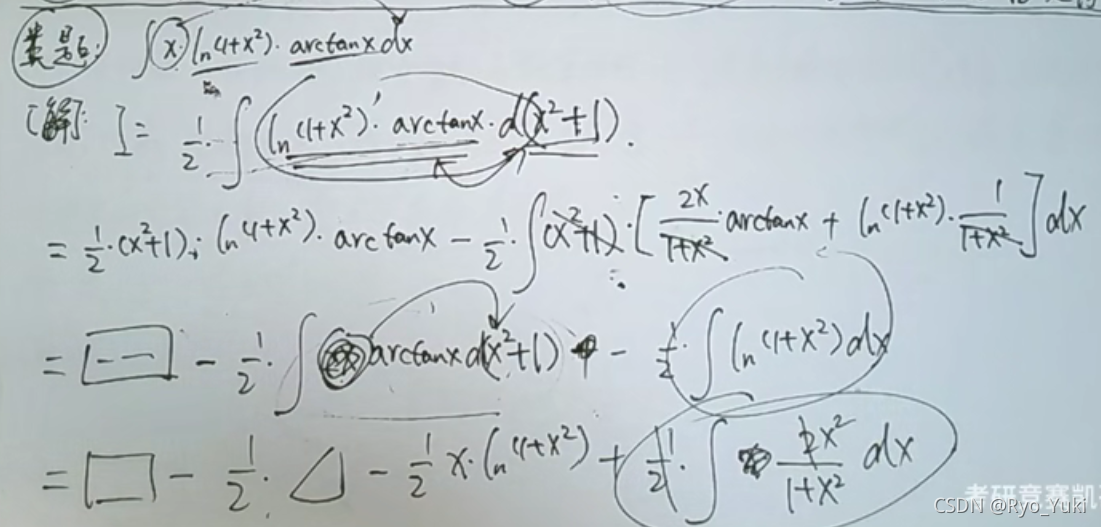 类题: ∫ x·ln(1+x²)·arctanx dx
[解]: I = 1/2·∫ ln(1+x²)·arctanx·d(x²+1).
= 1/2·(x²+1)·ln(1+x²)·arctanx - 1/2·∫(x²+1)·[2x/(1+x²)·arctanx + ln(1+x²)·1/(1+x²)]dx
= □ - 1/2·∫ arctanx d(x²+1) - 1/2·∫ ln(1+x²)dx
= □ - 1/2·△ - 1/2 x·ln(1+x²) + 1/2·∫ 2x²/(1+x²) dx
考研竞赛凯哥
CSDN @Ryo_Yuki